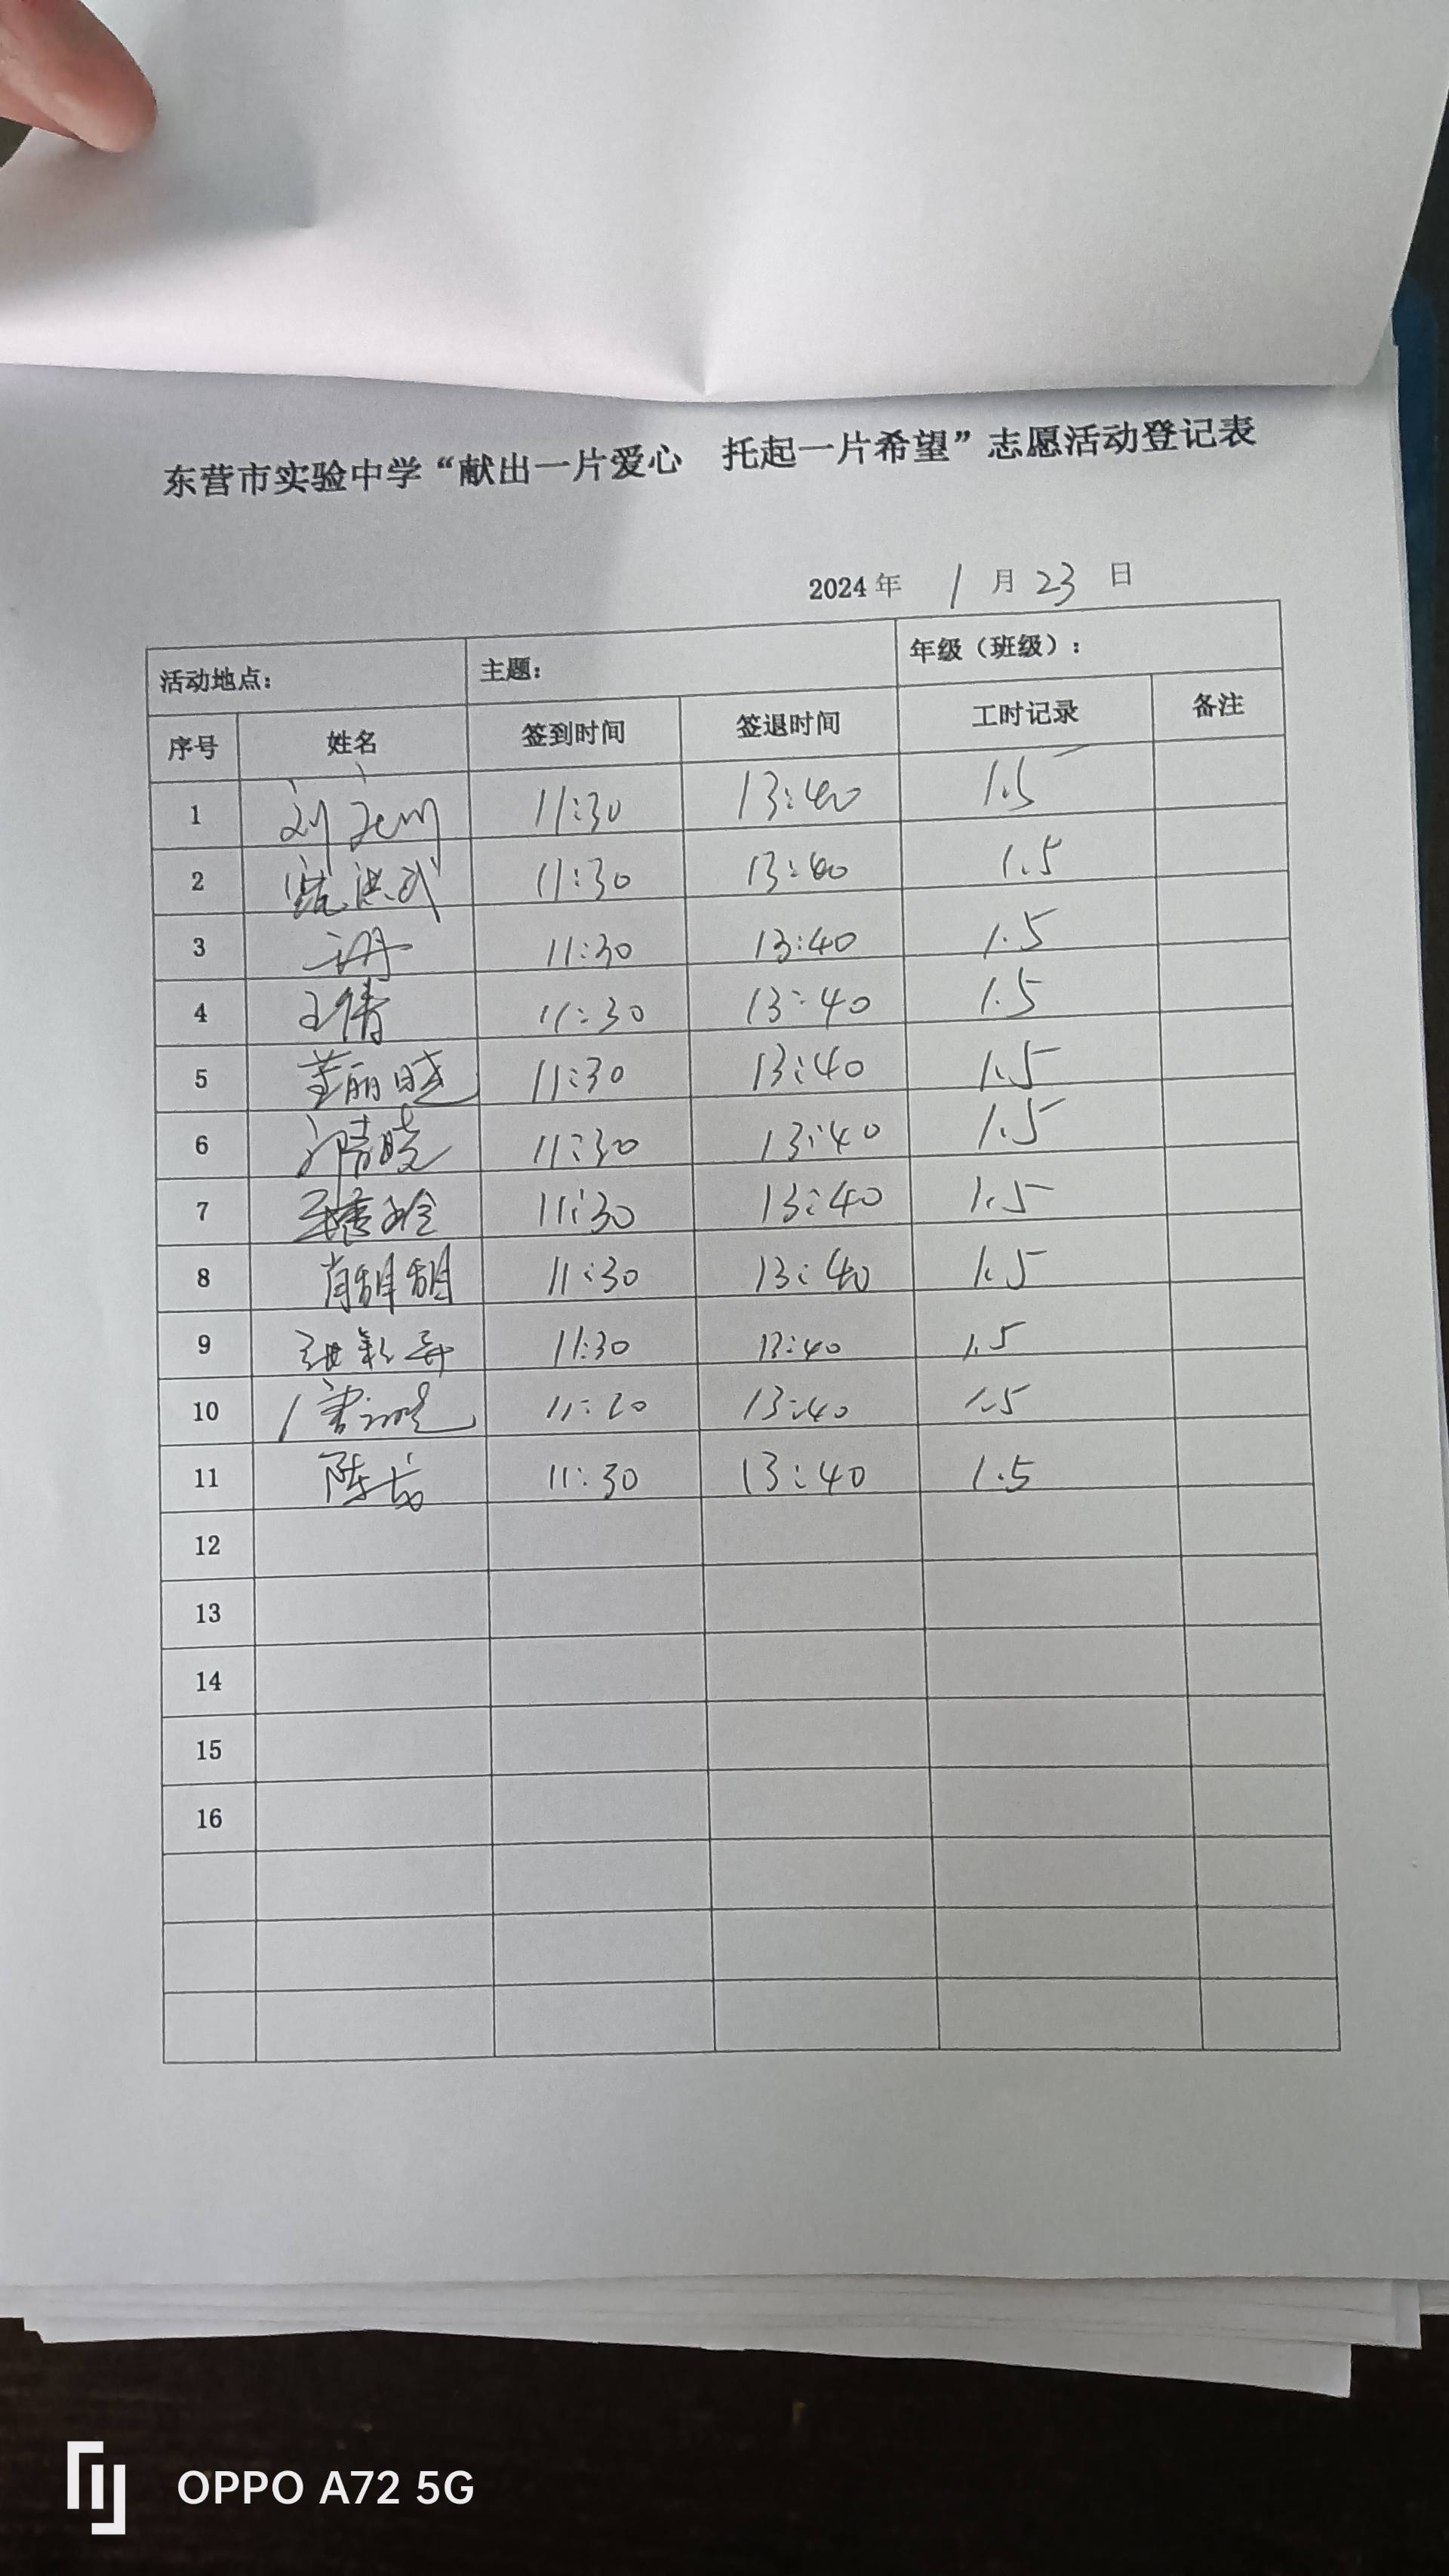 东营市实验中学“献出一片爱心 托起一片希望”志愿活动登记表
2024年 1 月 23 日
活动地点: 主题: 年级（班级）:
序号 姓名 签到时间 签退时间 工时记录 备注
1 11:30 13:40 1.5
2 11:30 13:40 1.5
3 11:30 13:40 1.5
4 王倩 11:30 13:40 1.5
5 董丽晓 11:30 13:40 1.5
6 11:30 13:40 1.5
7 11:30 13:40 1.5
8 肖甜甜 11:30 13:40 1.5
9 11:30 13:40 1.5
10 13:40 1.5
11 陈 11:30 13:40 1.5
12
13
14
15
16
OPPO A72 5G